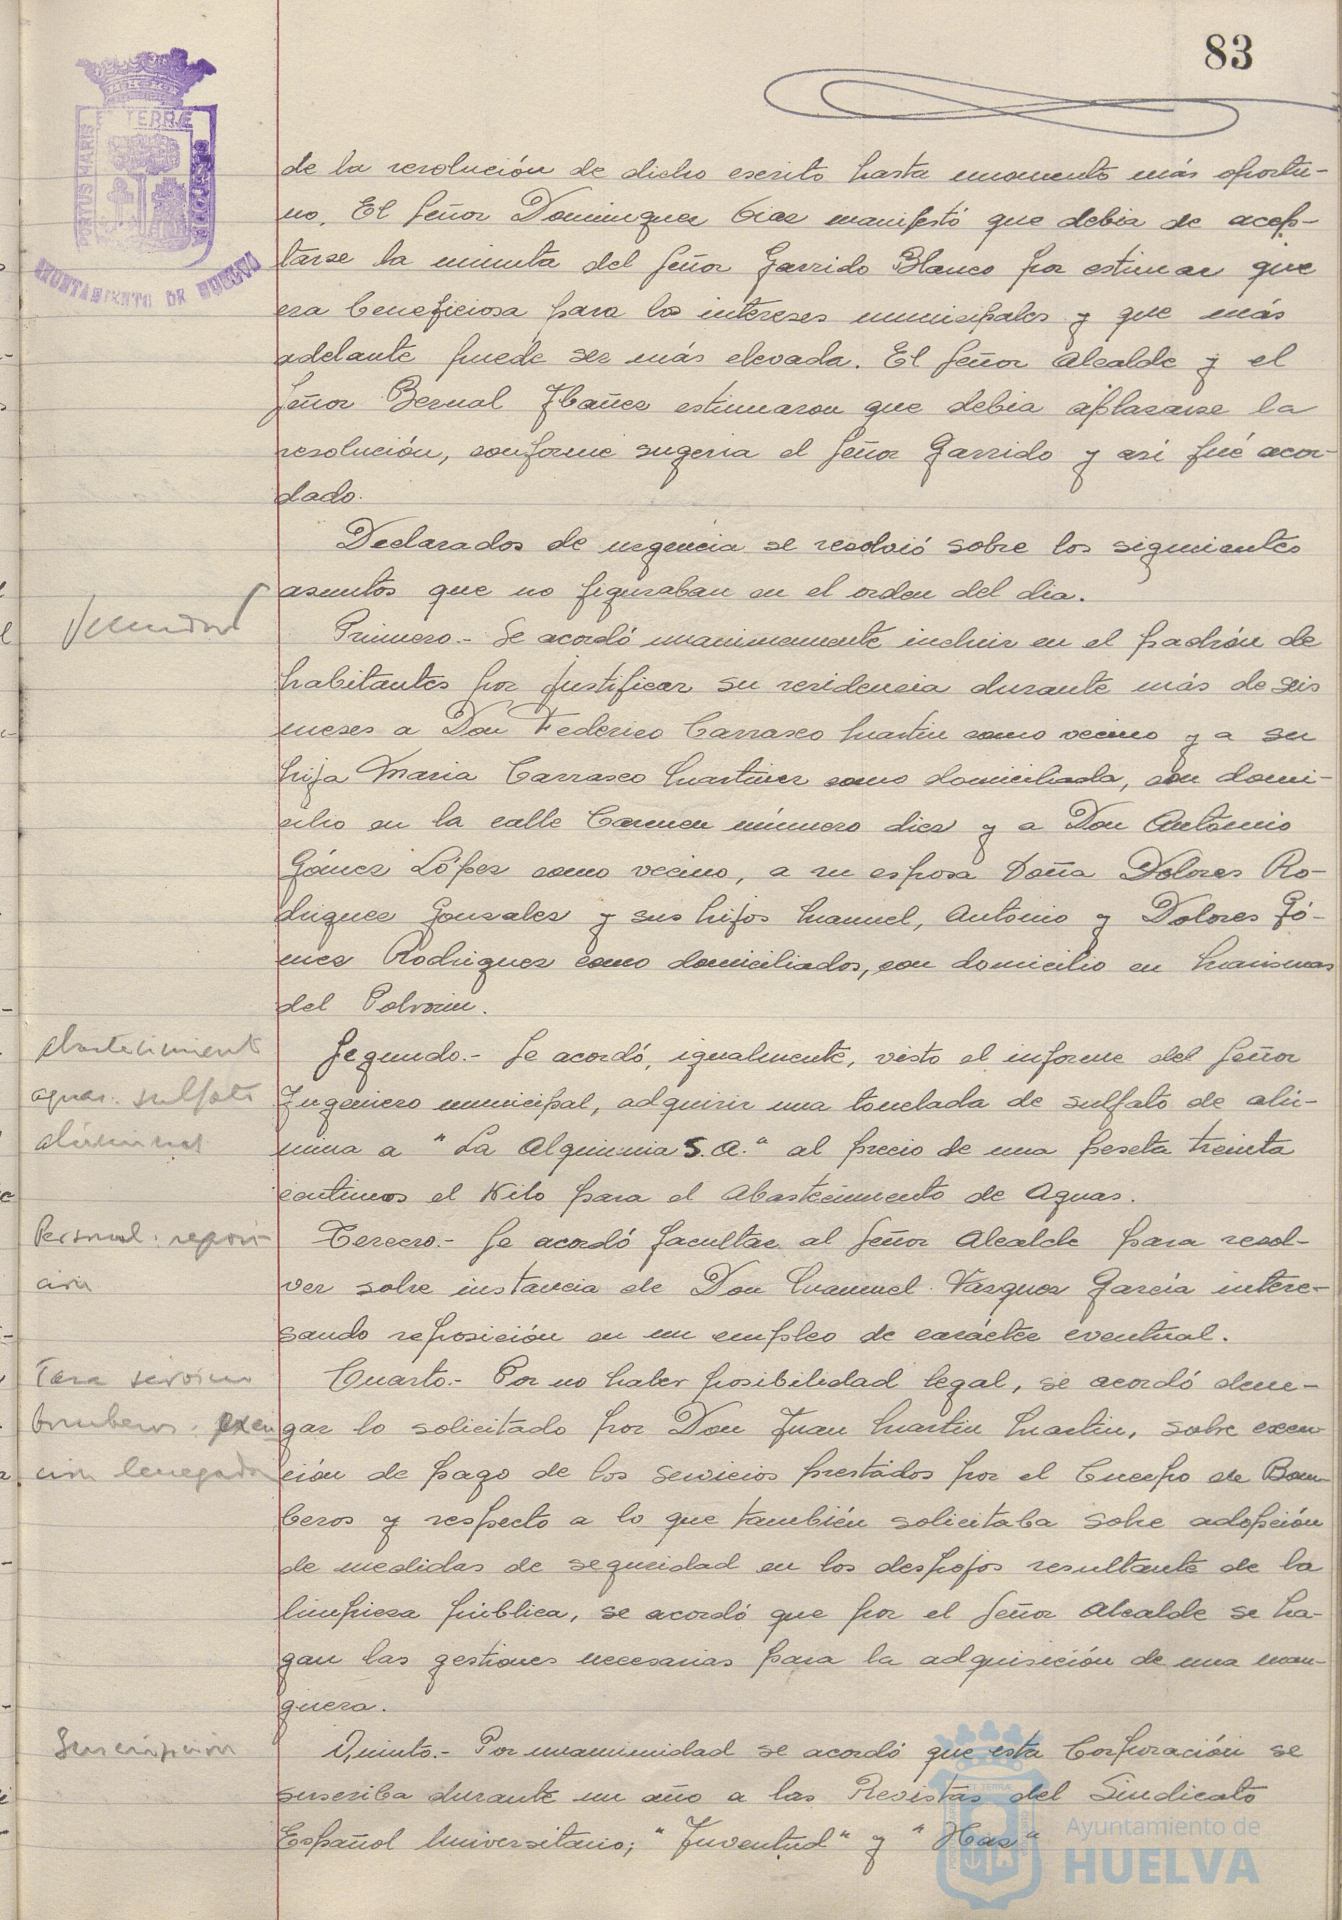 83
PORTUS MARIS ET TERRÆ CUSTODIA
AYUNTAMIENTO DE HUELVA
de la resolución de dicho escrito hasta momento más oportu-
no. El Señor Dominguez manifestó que debia de acep-
tarse la minuta del Señor Garrido Blanco por estimar que
era beneficiosa para los intereses municipales y que más
adelante puede ser más elevada. El Señor Alcalde y el
Señor Bernal Ibañez estimaron que debia aplazarse la
resolución, conforme sugeria el Señor Garrido y asi fué acor-
dado.
Declarados de urgencia se resolvió sobre los siguientes
asuntos que no figuraban en el orden del dia.
Primero.- Se acordó unanimemente incluir en el padrón de
habitantes por justificar su residencia durante más de seis
meses a Don Federico Carrasco Martin como vecino y a su
hija Maria Carrasco Martinez como domiciliada, con domi-
cilio en la calle Carmen número diez y a Don Antonio
Gómez López como vecino, a su esposa Doña Dolores Ro-
driguez Gonzalez y sus hijos Manuel, Antonio y Dolores Gó-
mez Rodriguez como domiciliados, con domicilio en Marismas
del Polvorin.
Abastecimiento
aguas. sulfato
alúmina
Segundo.- Se acordó, igualmente, visto el informe del Señor
Ingeniero municipal, adquirir una tonelada de sulfato de alú-
mina a "La Alquimia S. A." al precio de una peseta treinta
centimos el Kilo para el Abastecimiento de Aguas.
Personal. reposi-
ción
Tercero.- Se acordó facultar al Señor Alcalde para resol-
ver sobre instancia de Don Manuel Vázquez García intere-
sando reposición en un empleo de carácter eventual.
Tasa servicio
bomberos. exen
ción denegada
Cuarto.- Por no haber posibilidad legal, se acordó dene-
gar lo solicitado por Don Juan Martin Martin, sobre exen-
ción de pago de los servicios prestados por el Cuerpo de Bom-
beros y respecto a lo que también solicitaba sobre adopción
de medidas de seguridad en los despojos resultante de la
limpieza pública, se acordó que por el Señor Alcalde se ha-
gan las gestiones necesarias para la adquisición de una man-
guera.
Suscripción
Quinto.- Por unanimidad se acordó que esta Corporación se
suscriba durante un año a las Revistas del Sindicato
Español Universitario; "Juventud" y "Haz"
Ayuntamiento de
HUELVA